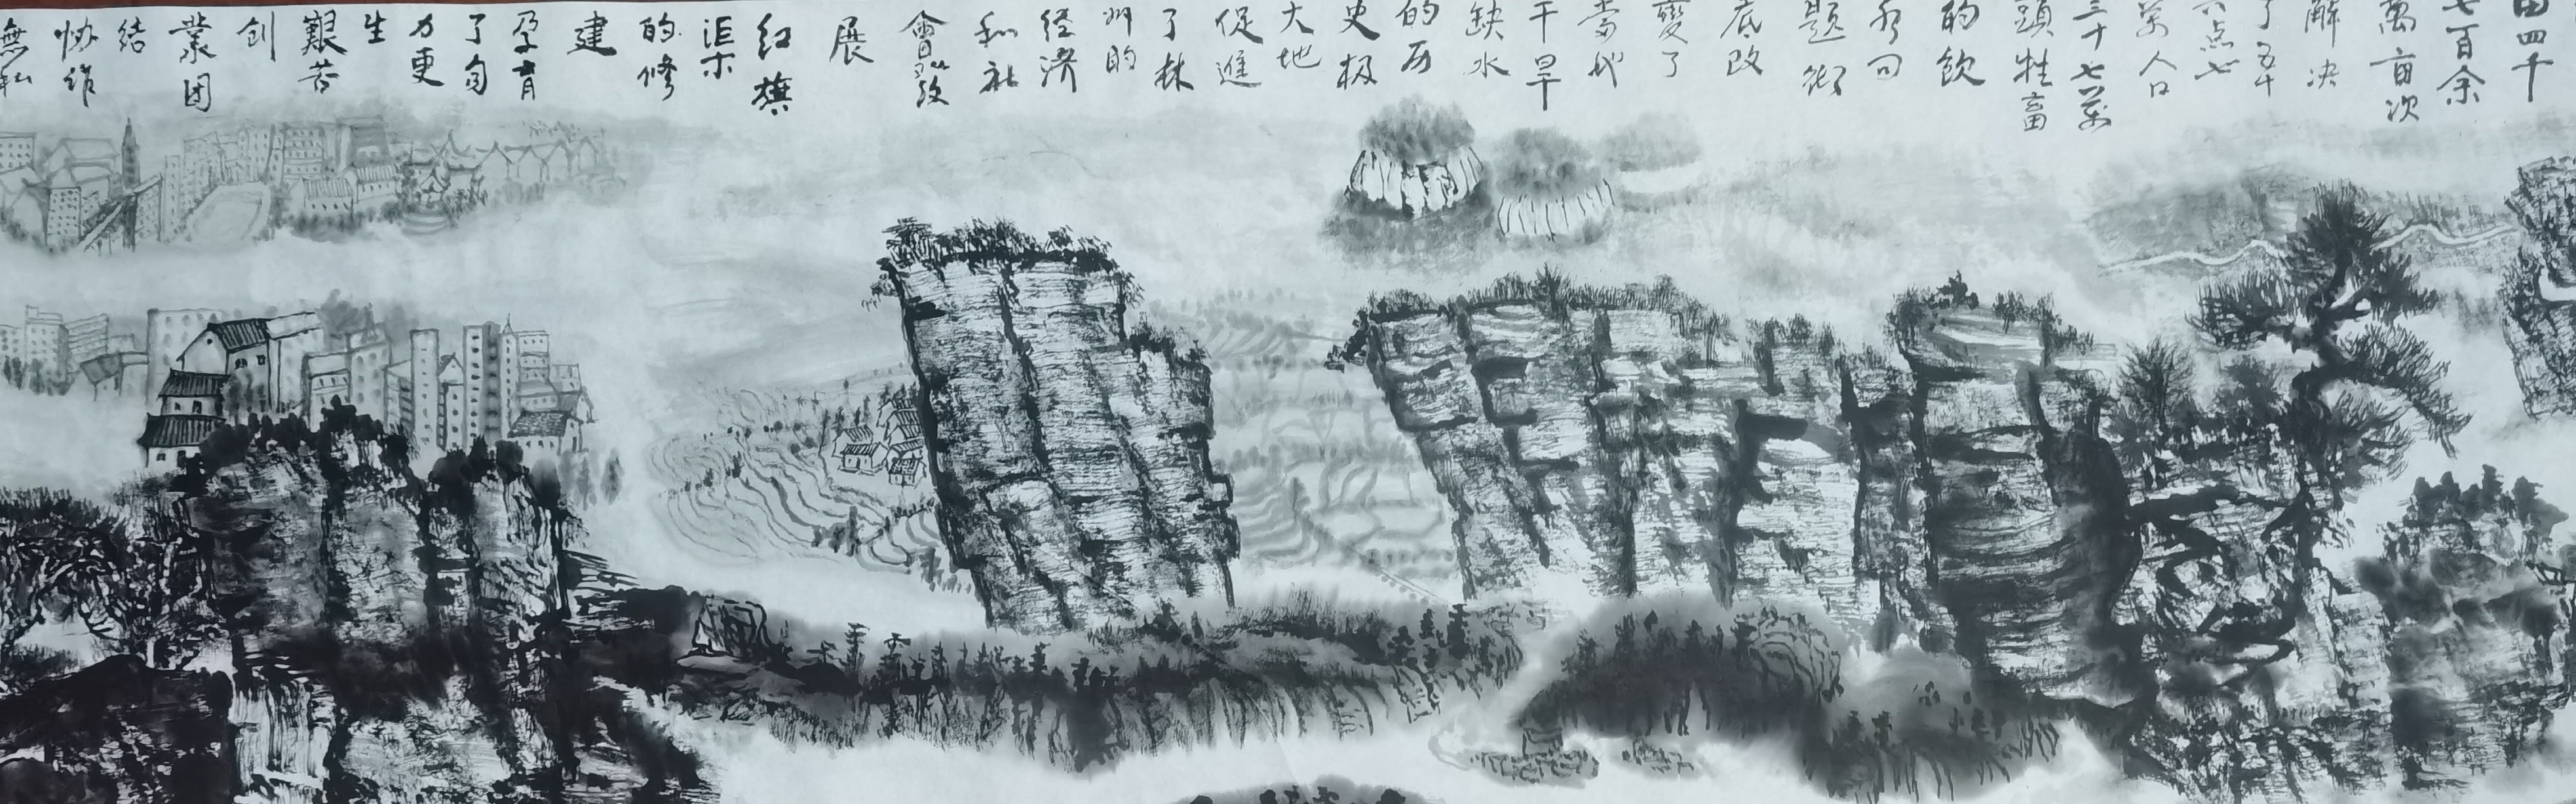 田四千
七百余
萬亩次
解决
了五十
六点七
萬人口
三十七萬
頭牲畜
的飲
水问
題彻
底改
變了
當代
干旱
缺水
的历
史极
大地
促進
了林
州的
经济
和社
會發
展
红旗
渠
的修
建
孕育
了自
力更
生
艱苦
創
業团
结
协作
無私